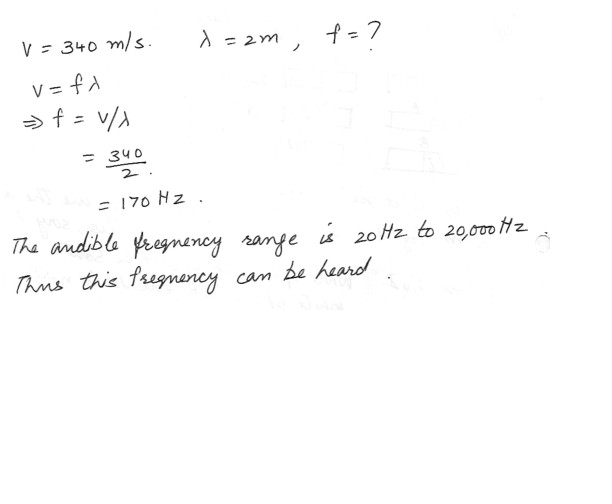 V = 340 m/s. λ = 2m , f = ?
V = fλ
⇒ f = V/λ
= 340/2 .
= 170 Hz .
The audible frequency range is 20 Hz to 20,000 Hz .
Thus this frequency can be heard .